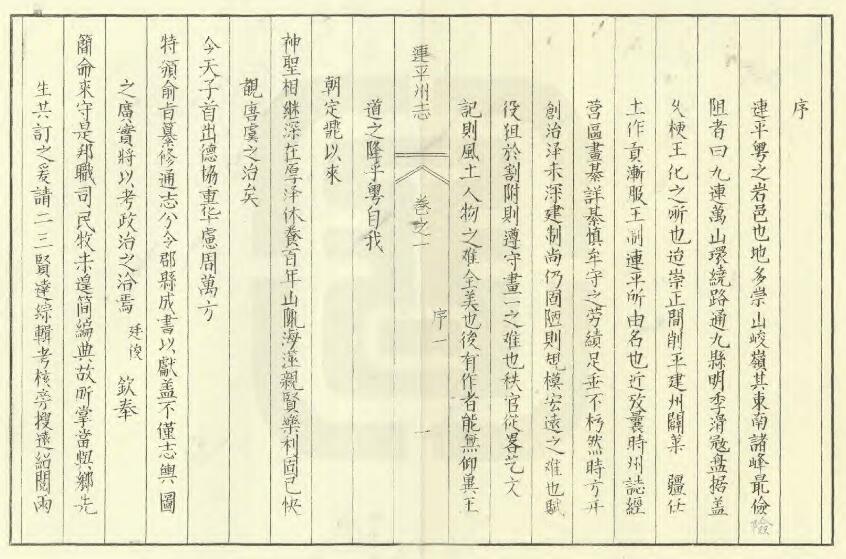 序
連平粤之岩邑也地多崇山峻嶺其東南諸峰最險
阻者曰九連萬山環繞路通九縣明季滑冦盘据盖
久梗王化之所也迨崇正間削平建州闢菜 疆任
土作貢漸服王制連平所由名也近攷曩時州誌經
营區畫綦詳綦慎牟守之劳績足垂不朽然時方开
創治泽未深建制尚仍固陋則規模宏遠之难也賦
役狃於割附則遵守畫一之难也秩官從畧艺文
記則風土人物之难全美也後有作者能無仰兾王
連平州志
卷之一
序一
一
道之隆乎粤自我
朝定鼎以来
神聖相継深在厚泽休養百年山陬海澨親賢樂利固已快
覩唐虞之治矣
今天子首出德恊重华慮周萬方
特頒俞旨纂修通志分令郡縣成書以獻盖不僅志輿圖
之廣實將以考政治之洽焉 廷俊 欽奉
簡命来守是邦職司民牧未遑簡編典故所掌當與鄉先
生共訂之爰請二三賢達綜輯考核旁搜遠紹閱兩